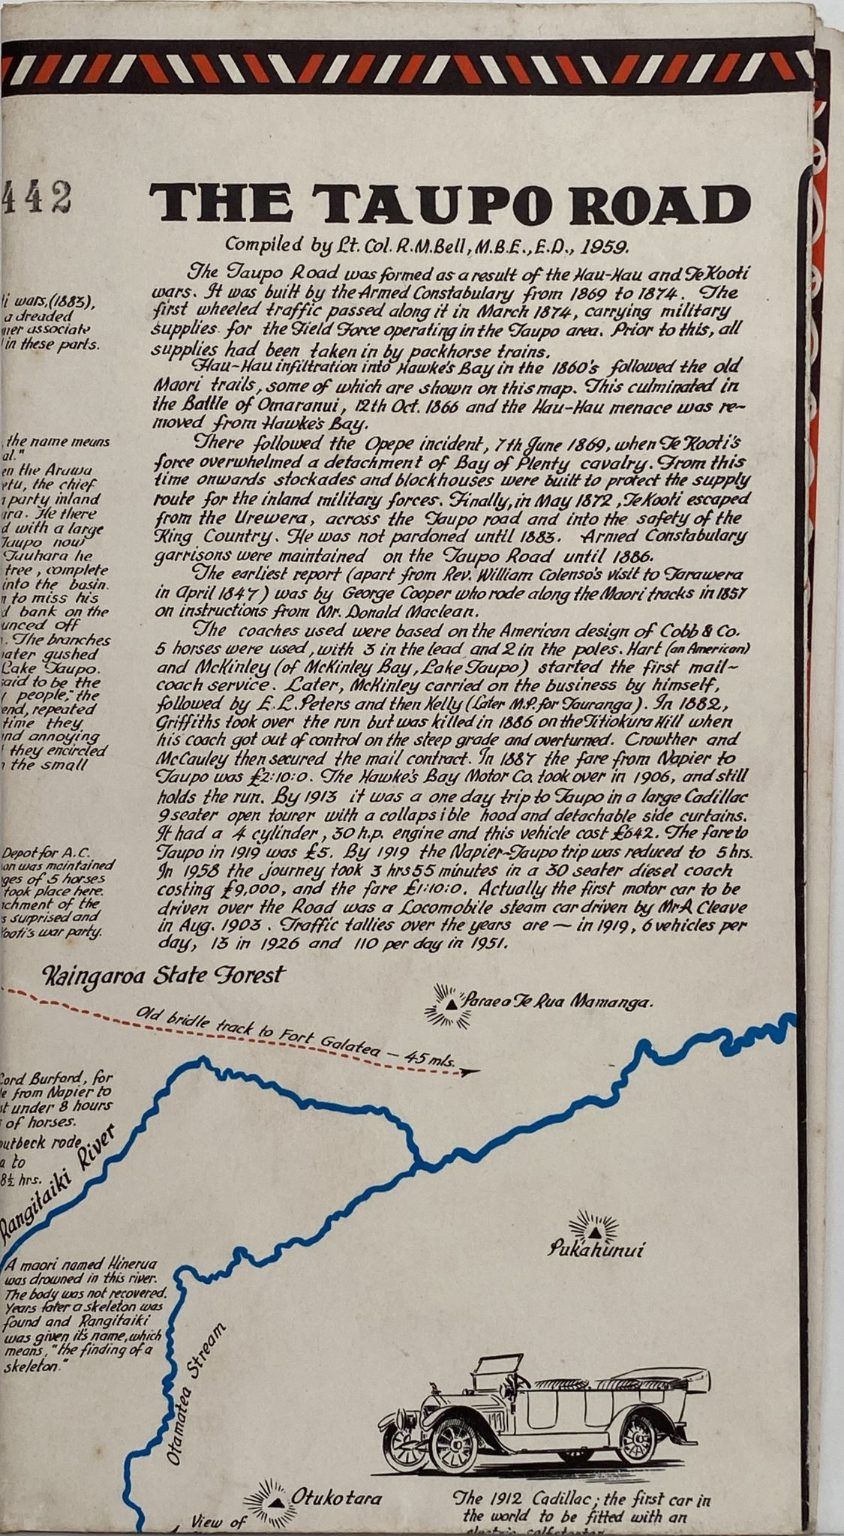 442
THE TAUPO ROAD
Compiled by Lt. Col. R.M.Bell, M.B.E., E.D., 1959.
The Taupo Road was formed as a result of the Hau-Hau and Te Kooti
wars. It was built by the Armed Constabulary from 1869 to 1874. The
first wheeled traffic passed along it in March 1874, carrying military
supplies for the Field Force operating in the Taupo area. Prior to this, all
supplies had been taken in by packhorse trains.
Hau-Hau infiltration into Hawke's Bay in the 1860's followed the old
Maori trails, some of which are shown on this map. This culminated in
the Battle of Omaranui, 12th Oct. 1866 and the Hau-Hau menace was re-
moved from Hawke's Bay.
There followed the Opepe incident, 7th June 1869, when Te Kooti's
force overwhelmed a detachment of Bay of Plenty cavalry. From this
time onwards stockades and blockhouses were built to protect the supply
route for the inland military forces. Finally, in May 1872, Te Kooti escaped
from the Urewera, across the Taupo road and into the safety of the
King Country. He was not pardoned until 1883. Armed Constabulary
garrisons were maintained on the Taupo Road until 1886.
The earliest report (apart from Rev. William Colenso's visit to Tarawera
in April 1847) was by George Cooper who rode along the Maori tracks in 1857
on instructions from Mr. Donald Maclean.
The coaches used were based on the American design of Cobb & Co.
5 horses were used, with 3 in the lead and 2 in the poles. Hart (an American)
and McKinley (of McKinley Bay, Lake Taupo) started the first mail-
coach service. Later, McKinley carried on the business by himself,
followed by E.L. Peters and then Kelly (Later M.P. for Tauranga). In 1882,
Griffiths took over the run but was killed in 1886 on the Titiokura Hill when
his coach got out of control on the steep grade and overturned. Crowther and
McCauley then secured the mail contract. In 1887 the fare from Napier to
Taupo was £2:10:0. The Hawke's Bay Motor Co. took over in 1906, and still
holds the run. By 1913 it was a one day trip to Taupo in a large Cadillac
9 seater open tourer with a collapsible hood and detachable side curtains.
It had a 4 cylinder, 30 h.p. engine and this vehicle cost £642. The fare to
Taupo in 1919 was £5. By 1919 the Napier-Taupo trip was reduced to 5 hrs.
In 1958 the journey took 3 hrs 55 minutes in a 30 seater diesel coach
costing £9,000, and the fare £1:10:0. Actually the first motor car to be
driven over the Road was a Locomobile steam car driven by Mr A Cleave
in Aug. 1903. Traffic tallies over the years are — in 1919, 6 vehicles per
day, 13 in 1926 and 110 per day in 1951.
i wars, (1883),
a dreaded
mer associate
in these parts.
, the name means
al."
en the Arawa
etu, the chief
party inland
ara. He there
d with a large
Taupo now
Tauhara he
tree, complete
into the basin.
to miss his
d bank on the
unced off
. The branches
ater gushed
Lake Taupo.
said to be the
people," the
end, repeated
time they
and annoying
they encircled
the small
Depot for A.C.
on was maintained
ges of 5 horses
took place here.
achment of the
s surprised and
Kooti's war party.
Kaingaroa State Forest
Old bridle track to Fort Galatea — 45 mls.
Paraeo Te Rua Mamanga.
Lord Burford, for
e from Napier to
t under 8 hours
of horses.
outbeck rode
a to
8½ hrs.
Rangitaiki River
Pukahunui
A maori named Hinerua
was drowned in this river.
The body was not recovered.
Years later a skeleton was
found and Rangitaiki
was given its name, which
means, "the finding of a
skeleton."
Otamatea Stream
Otukotara
View of
The 1912 Cadillac; the first car in
the world to be fitted with an
electric selfstarter